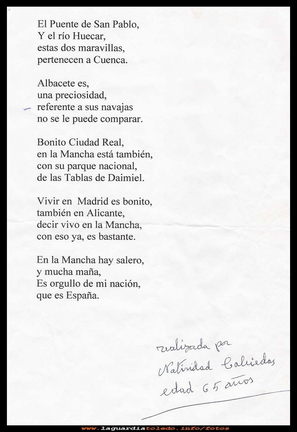 El Puente de San Pablo,
Y el río Huecar,
estas dos maravillas,
pertenecen a Cuenca.
Albacete es,
una preciosidad,
referente a sus navajas
no se le puede comparar.
Bonito Ciudad Real,
en la Mancha está también,
con su parque nacional,
de las Tablas de Daimiel.
Vivir en Madrid es bonito,
también en Alicante,
decir vivo en la Mancha,
con eso ya, es bastante.
En la Mancha hay salero,
y mucha maña,
Es orgullo de mi nación,
que es España.
realizada por
Natividad Cabiedas
edad 65 años
www.laguardiatoledo.info/fotos